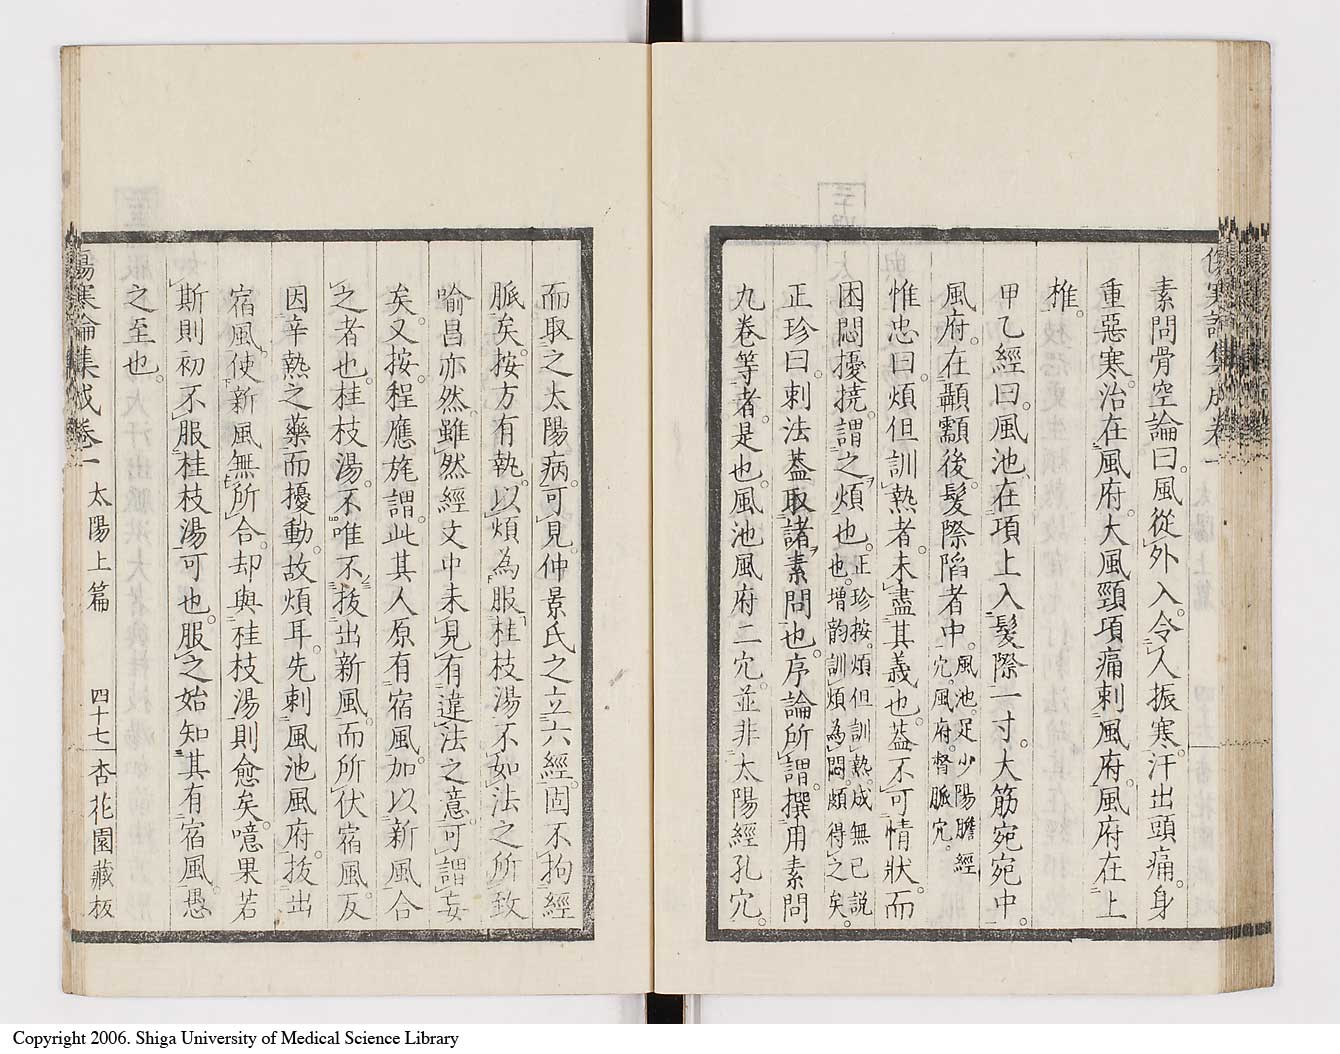 素問骨空論曰。風從外入。令人振寒。汗出頭痛。身
重惡寒。治在風府。大風頸項痛刺風府。風府在上
椎。
甲乙經曰。風池。在項上入髮際一寸。大筋宛宛中。
風府。在顳顬後。髮際陷者中。風池。足少陽膽經穴。風府。督脈穴。
惟忠曰。煩但訓熱者。未盡其義也。蓋不可情狀。而
困悶擾撓。謂之煩也。正珍按。煩但訓熱。成無已說也。增韵訓煩為悶。頗得之矣。
正珍曰。刺法蓋取諸素問也。序論所謂。撰用素問
九卷等者。是也。風池風府二穴。並非太陽經孔穴。
而取之太陽病。可見仲景氏之立六經。固不拘經
脈矣。按。方有執。以煩為服桂枝湯不如法之所致
喻昌亦然。雖然經文中未見有違法之意。可謂妄
矣。又按。程應旄謂。此其人原有宿風。加以新風合
之者也。桂枝湯。不唯不拔出新風。而所伏宿風。反
因辛熱之藥而擾動。故煩耳。先刺風池風府。拔出
宿風。使新風無所合。却與桂枝湯則愈矣。噫果若
斯則初不服桂枝湯可也。服之始知其有宿風。愚
之至也。
傷寒論集成卷一 太陽上篇 四十七 杏花園藏板